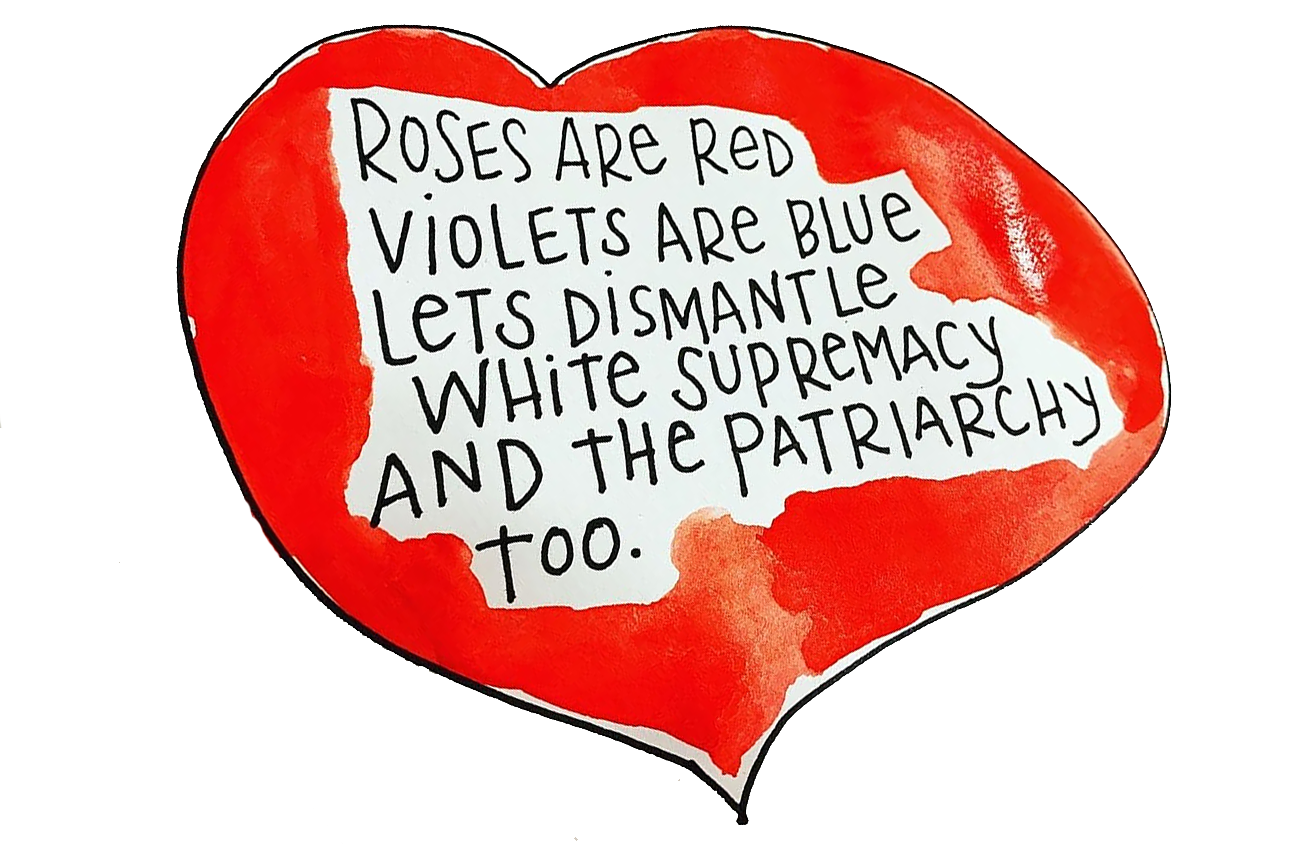 ROSES ARe ReD
ViOLETS ARe BLUe
LeTS DiSMANTLe
WHiTe SUPReMACy
AND THe PATRIARCHy
TOO.